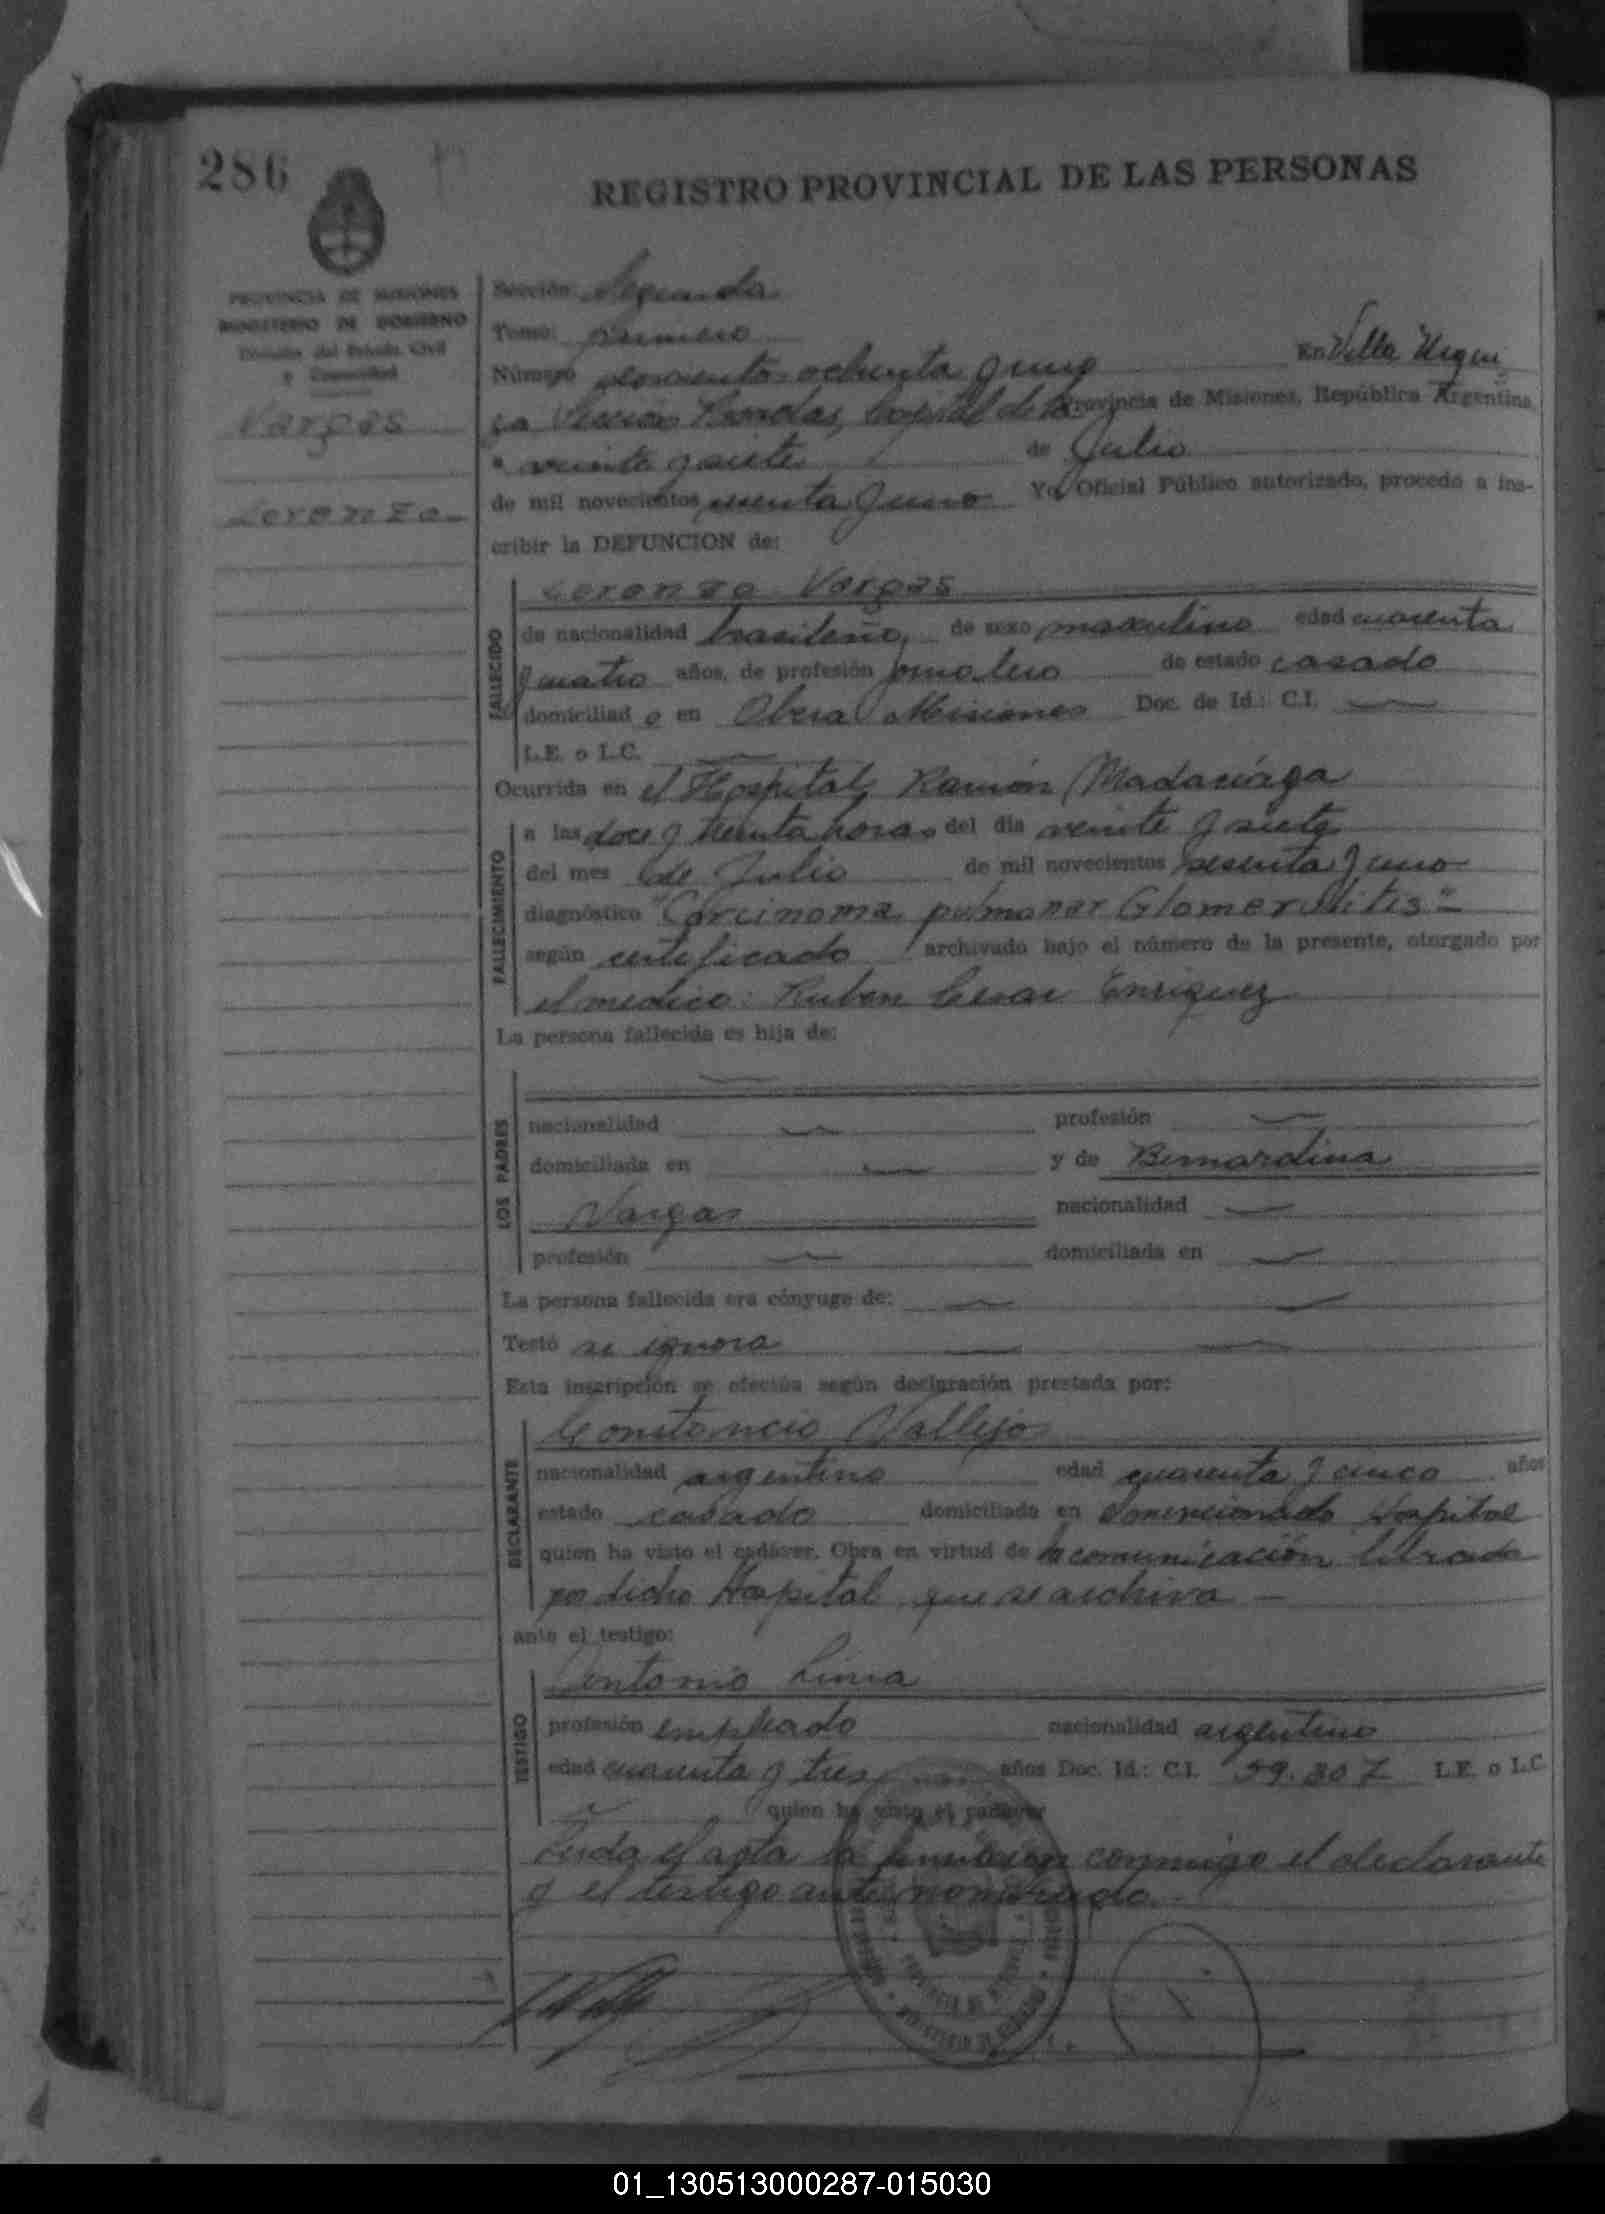 286
REGISTRO PROVINCIAL DE LAS PERSONAS
PROVINCIA DE MISIONES
MINISTERIO DE GOBIERNO
División del Estado Civil
y Capacidad
Vargas
Lorenzo
Sección: Segunda
Tomo: primero
Número doscientos ochenta y uno En Villa Urqui
za Sección Rondas, Capital de la Provincia de Misiones, República Argentina,
a veinte y siete de Julio
de mil novecientos sesenta y uno Yo, Oficial Público autorizado, procedo a ins-
cribir la DEFUNCION de:
FALLECIDO
Lorenzo Vargas
de nacionalidad brasileño, de sexo masculino edad cuarenta
y cuatro años, de profesión jornalero de estado casado
domiciliado en Obera Misiones Doc. de Id.: C.I.
L.E. o L.C.
Ocurrida en el Hospital Ramón Madariaga
FALLECIMIENTO
a las doce y treinta horas del dia veinte y siete
del mes de Julio de mil novecientos sesenta y uno
diagnóstico "Carcinoma pulmonar Glomerulitis"
según certificado archivado bajo el número de la presente, otorgado por
el medico: Ruben Cesar Enriquez
La persona fallecida es hija de:
LOS PADRES
nacionalidad profesión
domiciliada en y de Bernardina
Vargas nacionalidad
profesión domiciliada en
La persona fallecida era cónyuge de:
Testó se ignora
Esta inscripción se efectúa según declaración prestada por:
DECLARANTE
Constancio Vallejo
nacionalidad argentino edad cuarenta y cinco años
estado casado domiciliado en el mencionado Hospital
quien ha visto el cadáver. Obra en virtud de la comunicación librada
por dicho Hospital, que se archiva —
ante el testigo:
TESTIGO
Antonio Lima
profesión empleado nacionalidad argentino
edad cuarenta y tres años Doc. Id.: C.I. 59.307 L.E. o L.C.
quien ha visto el cadáver
Leida el acta la firmaron conmigo el declarante
y el testigo ante nombrado.
PROVINCIA DE MISIONES
MINISTERIO DE GOBIERNO
01_130513000287-015030